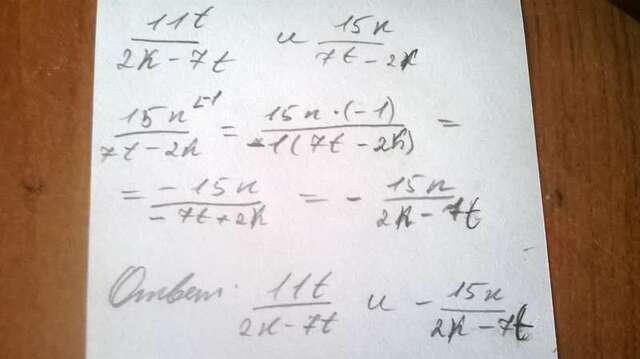 11t/(2n-7t) и 15n/(7t-2n)
15n^(-1)/(7t-2n) = 15n·(-1)/(-1(7t-2n)) =
= -15n/(-7t+2n) = - 15n/(2n-7t)
Ответ: 11t/(2n-7t) и - 15n/(2n-7t)